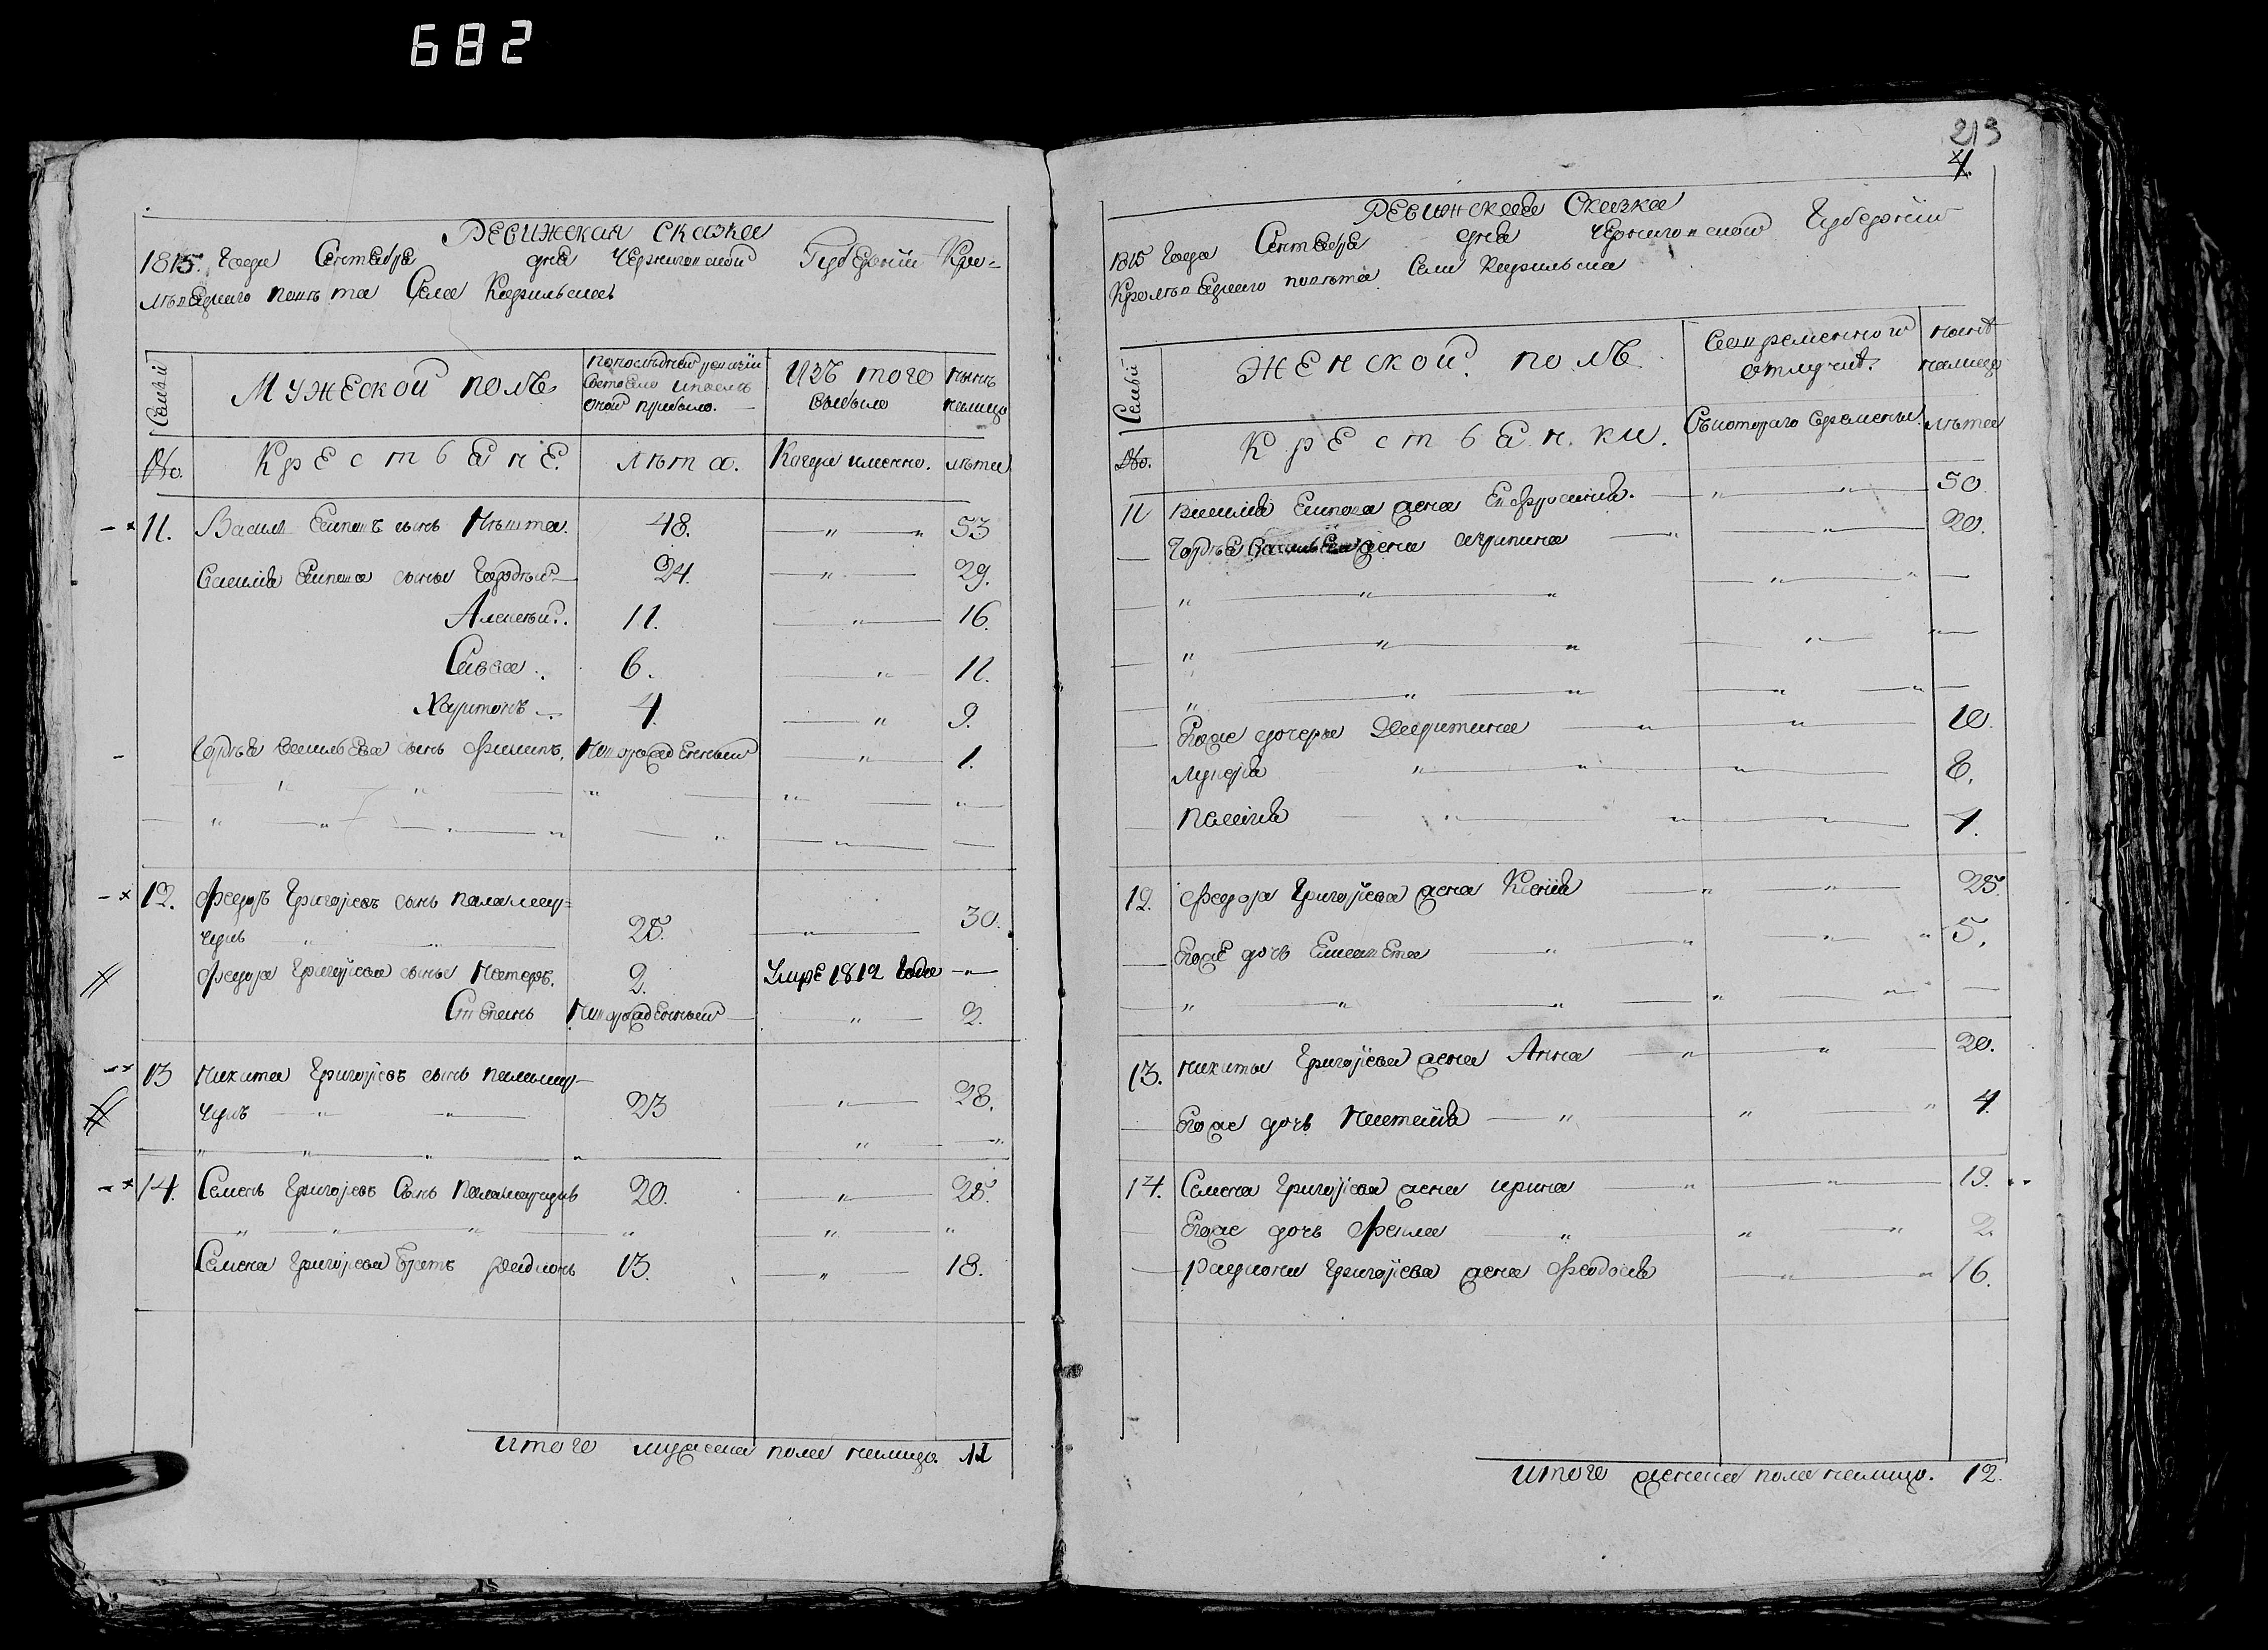 682
Ревижская сказка
1815. Года Сентебря дня Черниговской Губернии Кро=
лѣвецкаго повѣта Села Карильская
Семьи
Мужеской полъ
По последней ревизіи состояло и после оной прибыло.
Изъ того выбыло
нынѣ налицо
№.
Крестьяне.
Лѣта.
Когда именно.
лѣта
11. Василь Сын 48. " " 53
сыны Гордѣй 24. " 29.
Алексѣй. 11. " 16.
Савва 6. " 11.
Харитонъ 4. " 9.
Гордѣя Васильева сынъ Филипъ. Новорожденный " 1.
" " " " "
" " " " " "
12. Федоръ Григорьевъ сынъ Паламар=
чукъ " " 25. " 30.
Федора Григорьева сыны Петеръ. 2. Умре 1812 Года "
Степанъ Новорожденный " 2.
13 Никита Григорьевъ сынъ Паламар-
чукъ " " 23 " 28.
" " " " " "
14. Семенъ Григорьевъ Сынъ Паламарчукъ 20. " 25.
" " " " " "
Семена Григорьева братъ Радионъ 13. " 18.
Итого мужеска пола налицо. 11
213
4.
Ревижская Сказка
1815 Года Сентября дня Черниговской Губернии
Кролѣвецкаго повѣта Села Карильска
Семьи
Женской полъ
Во временной отлучкѣ.
нынѣ налицо
№.
Крестьянки.
Съ котораго времени.
лѣта
11 Василия жена Евфросиния. " " 50
Гордѣя Васильева жена Акрипина " " 20.
" " " " "
" " " " "
" " " " "
Егоже дочери " " 10.
" " " 8.
" " " 4.
12. Федора Григорьева жена Ксения " " 25.
Егоже дочь Елисавета " " " " 5.
" " " " "
13. Никиты Григорьева жена Анна " " 20.
Егоже дочь " " " 4
14. Семена Григорьева жена Ирина " " 19.
Егоже дочь Фекла " " " 2.
Радиона Григорьева жена Феодосия " " 16.
Итого женска пола налицо. 12.